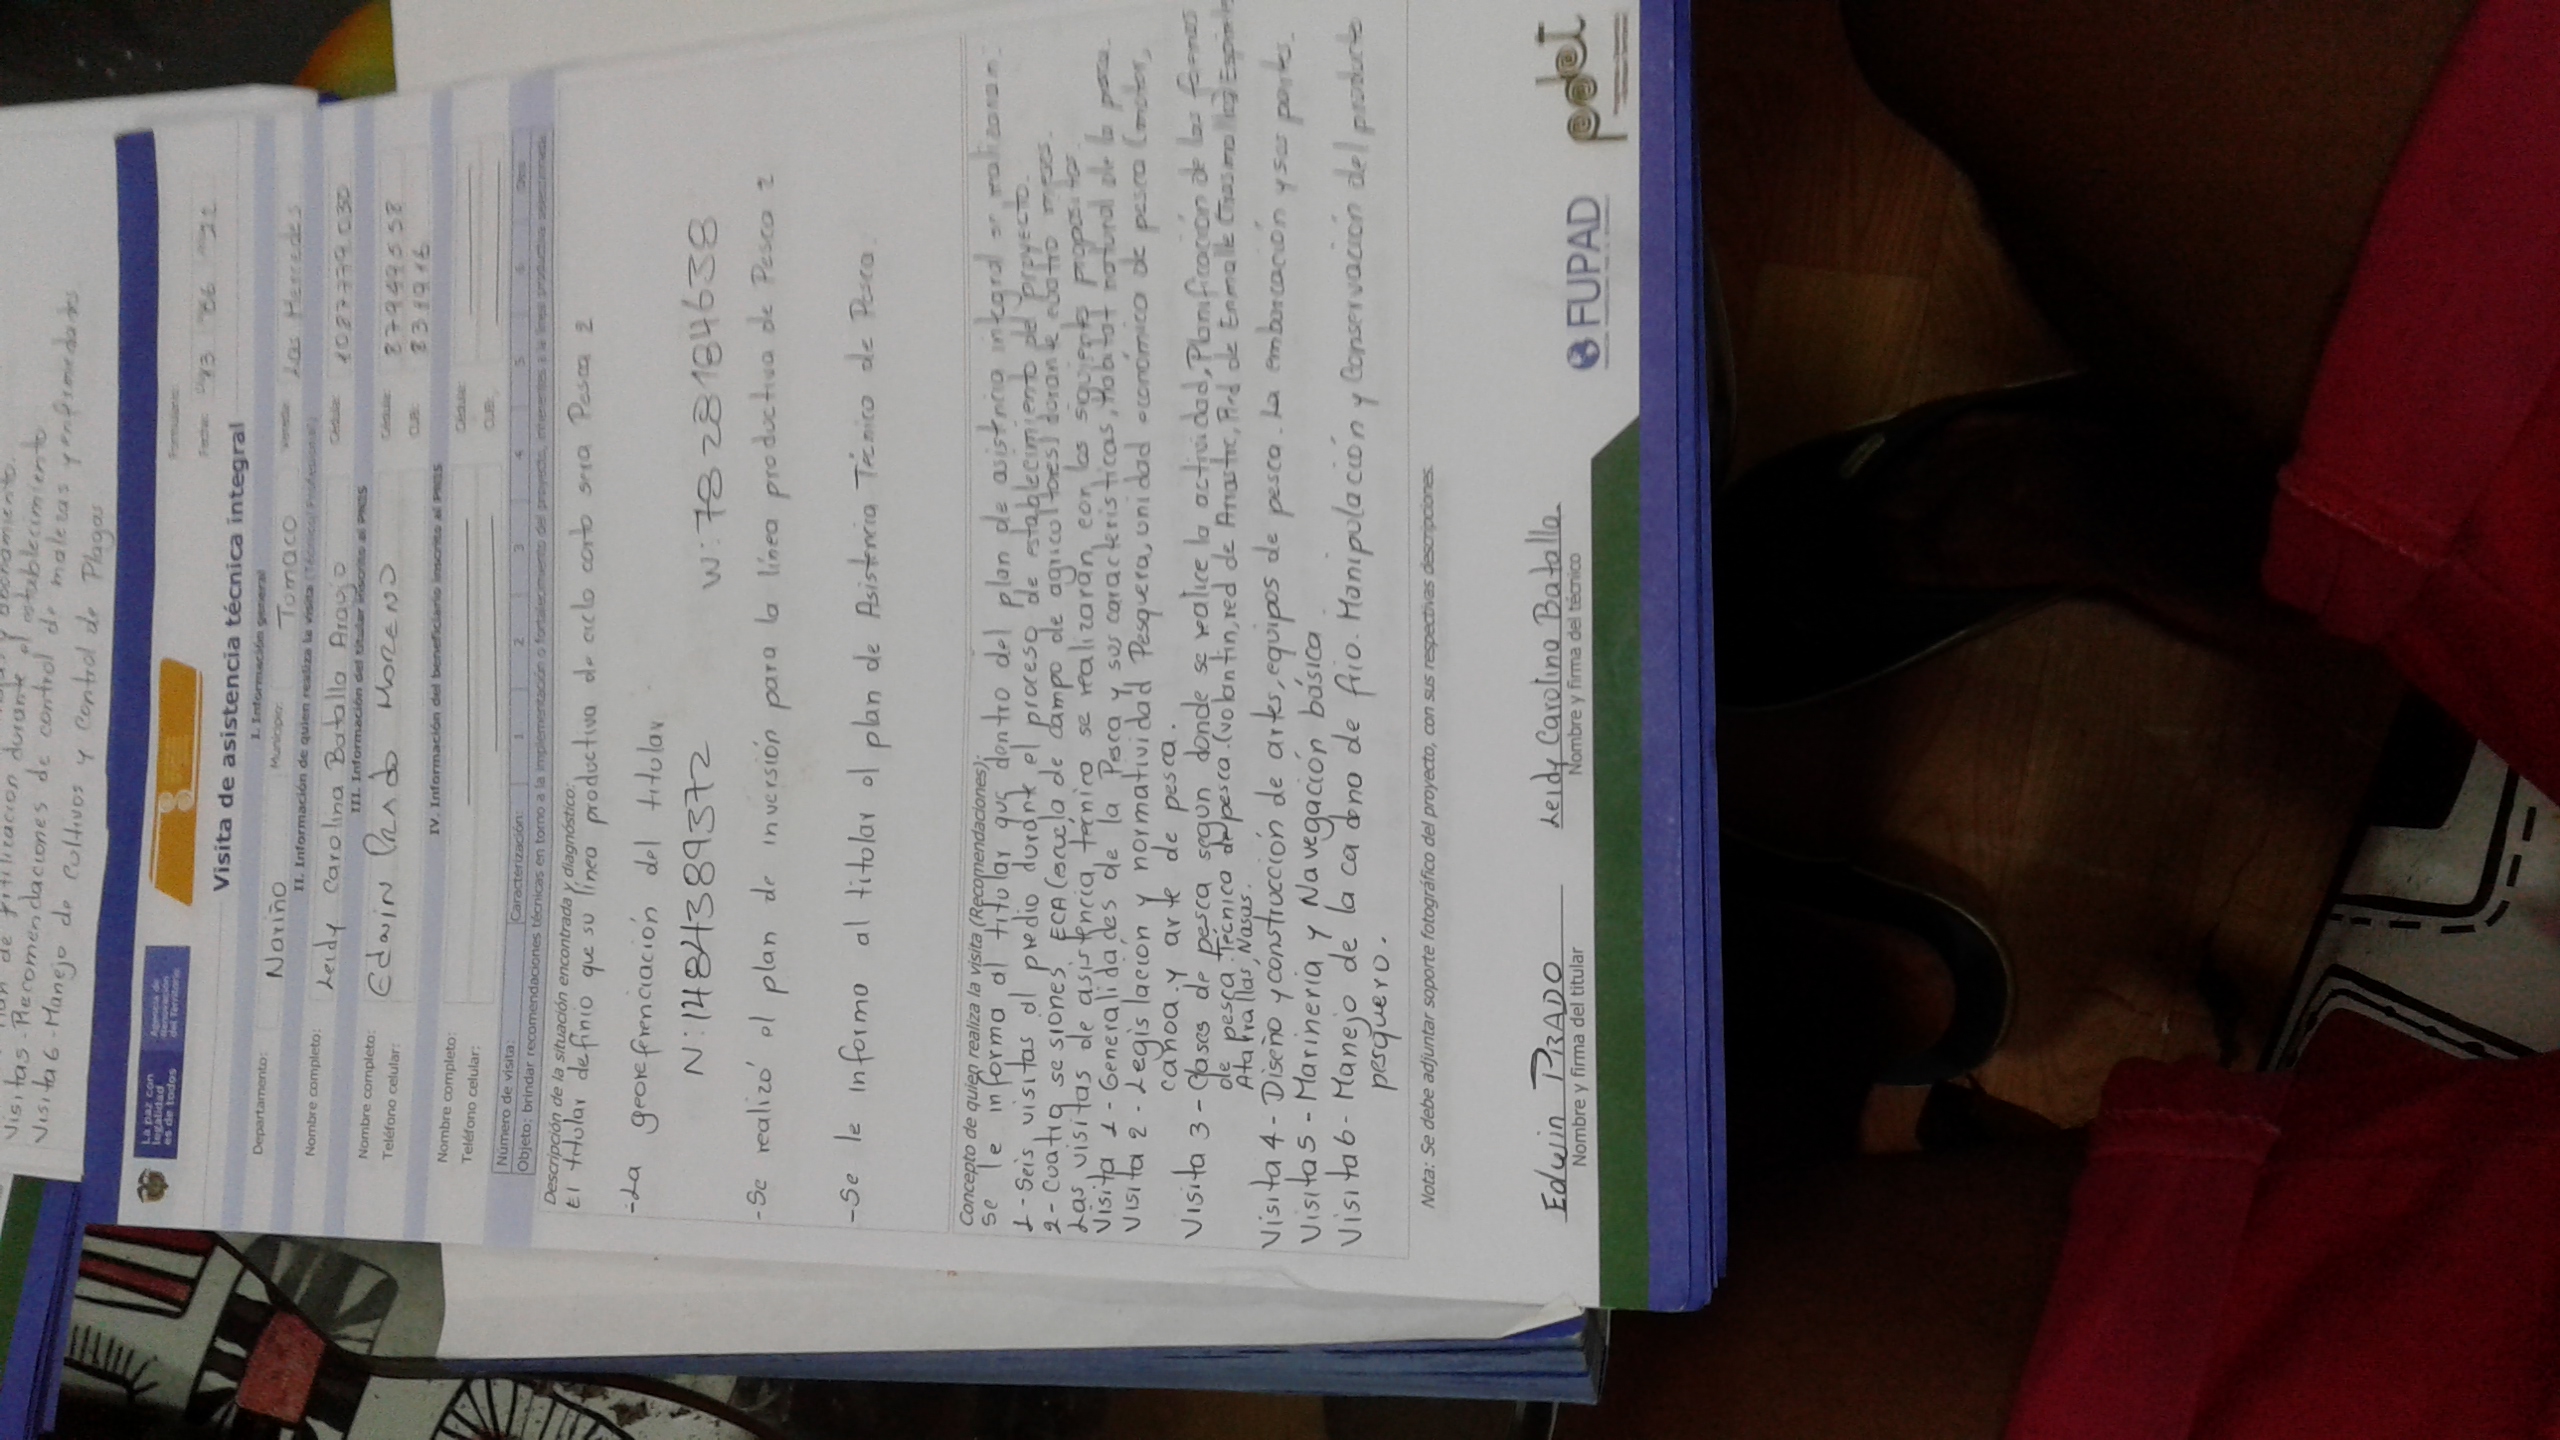 Visita 5 - Recomendaciones de control de malezas y enfermedades
Visita 6 - Manejo de Cultivos y control de Plagas
La paz con
legalidad
es de todos
Agencia de
Renovación
del Territorio
Formulario:
Fecha: 13 06 21
Visita de asistencia técnica integral
I. Información general
Departamento: Nariño Municipio: Tumaco Vereda: Las Mercedes
II. Información de quien realiza la visita (Técnico/Profesional)
Nombre completo: Leidy Carolina Batalla Arayo Cédula: 1087779030
III. Información del titular inscrito al PNIS
Nombre completo: Edwin Prado Moreno Cédula: 87949558
Teléfono celular: CUB: 831916
IV. Información del beneficiario inscrito al PNIS
Nombre completo: Cédula:
Teléfono celular: CUB:
Número de visita: Caracterización: 1 2 3 4 5 6 Otro
Objeto: brindar recomendaciones técnicas en torno a la implementación o fortalecimiento del proyecto, inherentes a la línea productiva seleccionada.
Descripción de la situación encontrada y diagnóstico:
El titular definio que su línea productiva de ciclo corto sera Pesca 2
- La georefrenciación del titular
N: 1484389372 W: 7828184638
- Se realizó el plan de inversión para la línea productiva de Pesca 2
- Se le informo al titular el plan de Asistencia Técnico de Pesca.
Concepto de quien realiza la visita (Recomendaciones):
Se le informa al titular que dentro del plan de asistencia integral se realizaran:
1 - Seis visitas al predio durante el proceso de establecimiento del proyecto.
2 - Cuatro sesiones ECA (escuela de campo de agricultores) durante cuatro meses.
Las visitas de asistencia técnica se realizarán con los siguiente proposito
Visita 1 - Generalidades de la Pesca y sus caracteristicas, Habitat natural de la pesca.
Visita 2 - Legislación y normatividad Pesquera, unidad economica de pesca (motor,
canoa y arte de pesca.
Visita 3 - Clases de pesca segun donde se realice la actividad, Planificación de las faenas
de pesca. Técnica de pesca. (volantin, red de Arrastre, Red de Enmalle
Atarrallas, Nasas.
Visita 4 - Diseño y construcción de artes, equipos de pesca. La embarcación y sus partes.
Visita 5 - Marineria y Navegación básica
Visita 6 - Manejo de la cadena de frio. Manipulación y Conservación del producto
pesquero.
Nota: Se debe adjuntar soporte fotográfico del proyecto, con sus respectivas descripciones.
Edwin PRADO
Nombre y firma del titular
Leidy Carolina Batalla
Nombre y firma del técnico
FUPAD
pdet